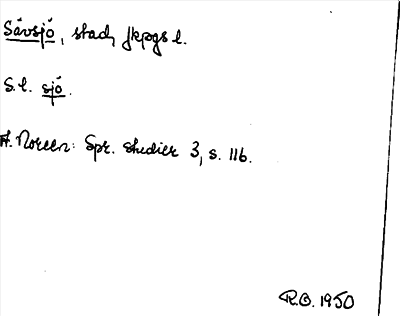 Sävsjö, stad, Jkpgs l.
S.l. sjö.
A. Noreen: Spr. studier 3, s. 116.
R.O. 1950